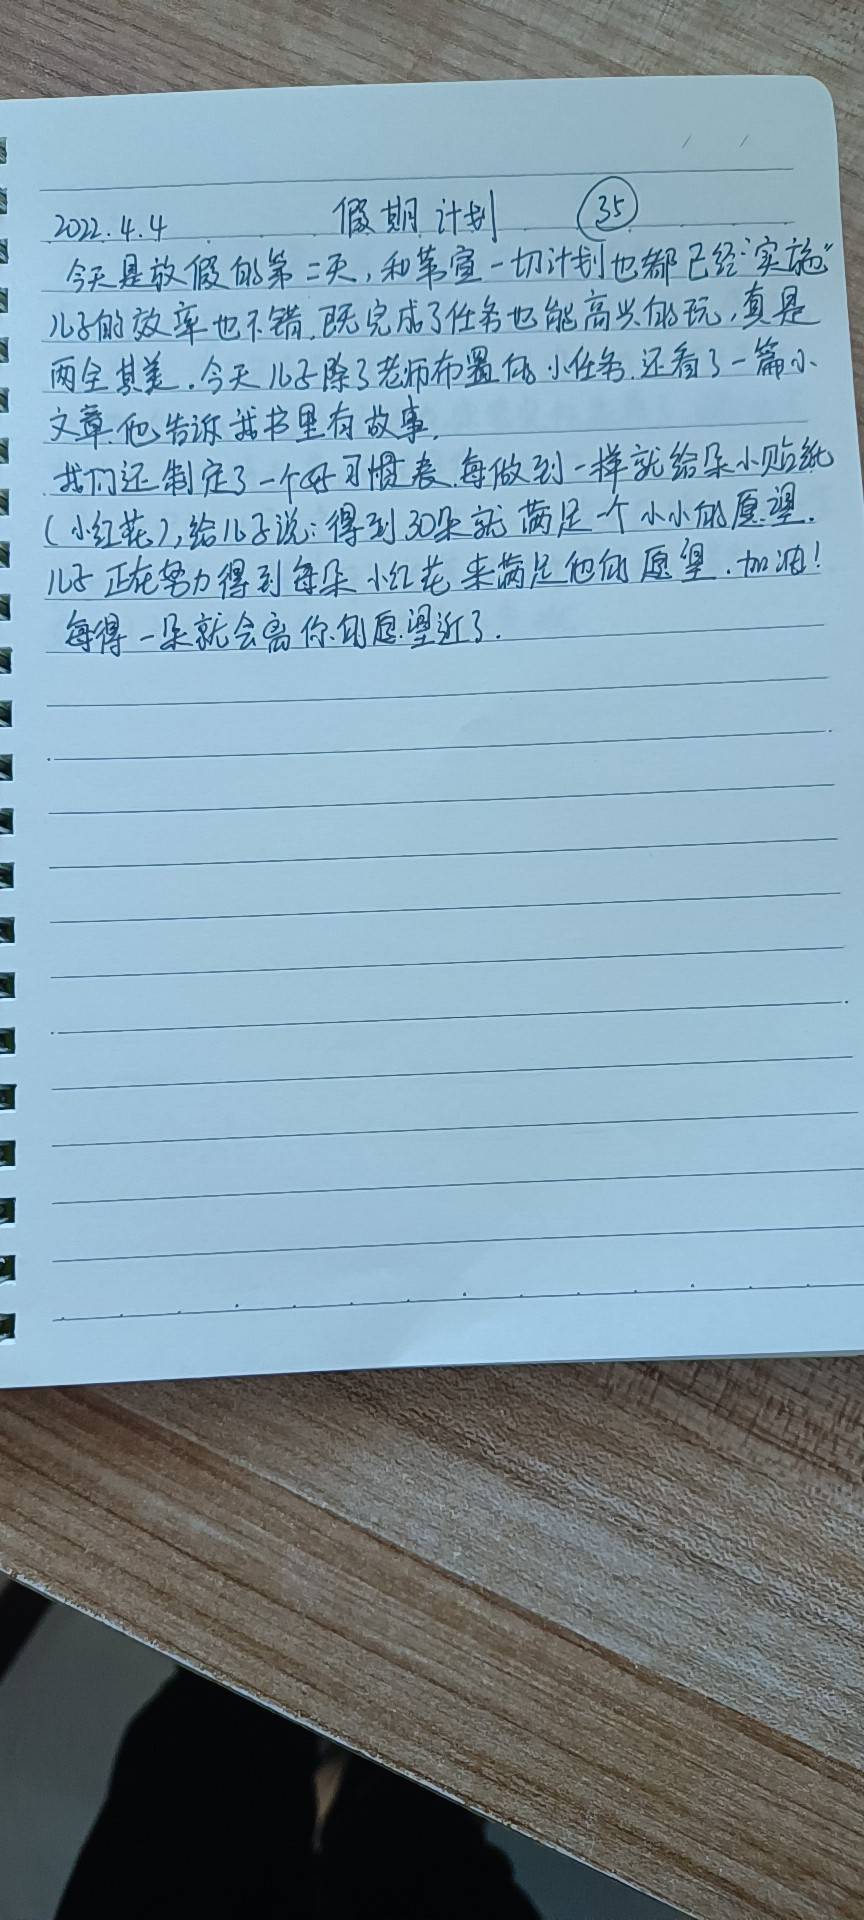 2022.4.4 假期计划 35
今天是放假的第二天,和草宣一切计划也都已经"实施"
儿子的效率也不错,既完成了任务也能高兴的玩,真是
两全其美.今天儿子除了老师布置的小任务.还看了一篇小
文章.他告诉我书里有故事.
我们还制定了一个好习惯表.每做到一样就给朵小贴纸
(小红花),给儿子说:得到30朵就满足一个小小的愿望.
儿子正在努力得到每朵小红花来满足他的愿望.加油!
每得一朵就会离你的愿望近了.